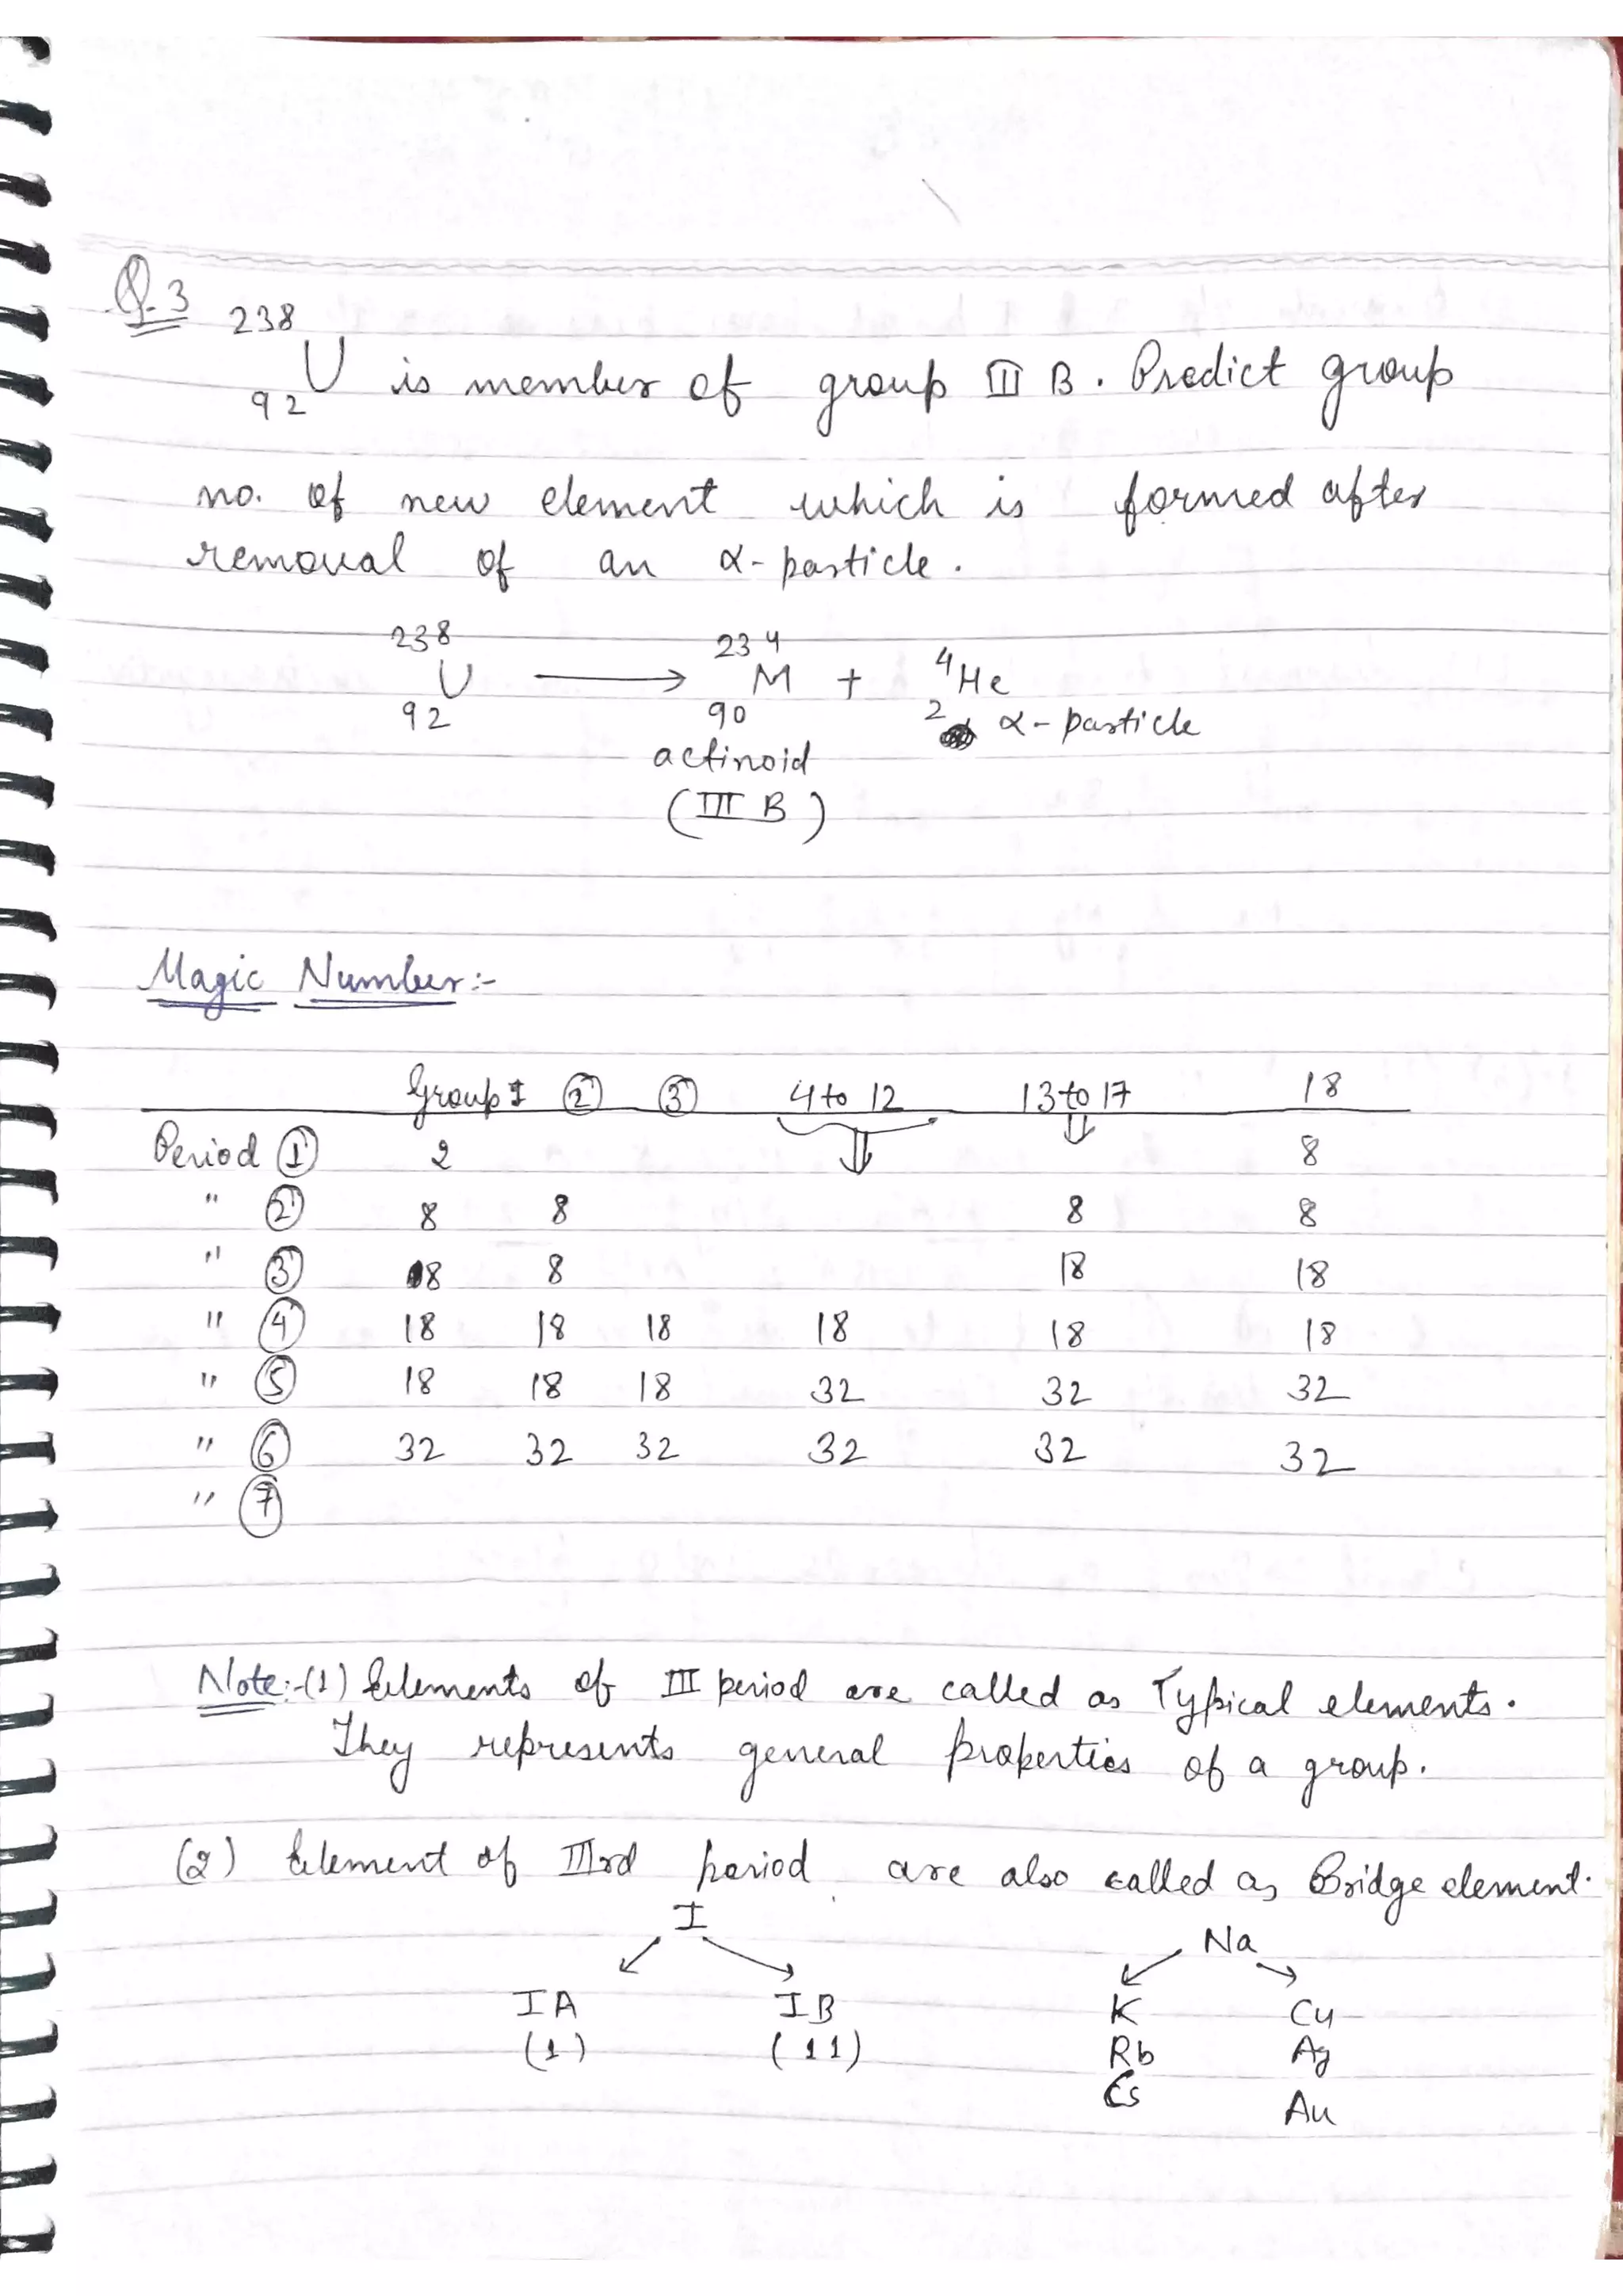 Q.3 238
92 U is member of group III B. Predict group
no. of new element which is formed after
removal of an α-particle.
238 234 4
U ⟶ M + He
92 90 2 α-particle
actinoid
(III B)
Magic Number:-
Group 1 ② ③ 4 to 12 13 to 17 18
Period ① 2 8
" ② 8 8 8 8
" ③ 8 8 18 18
" ④ 18 18 18 18 18 18
" ⑤ 18 18 18 32 32 32
" ⑥ 32 32 32 32 32 32
" ⑦
Note:-(1) Elements of III period are called as Typical elements.
They represents general properties of a group.
(2) Element of IIIrd period are also called as Bridge element.
I Na
IA IB K Cu
(1) (11) Rb Ag
Cs Au